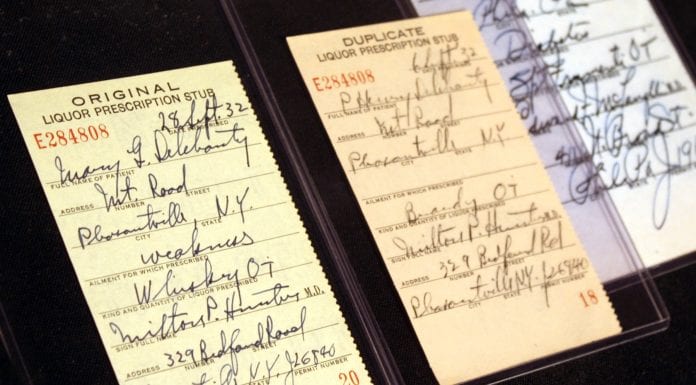 ORIGINAL
LIQUOR PRESCRIPTION STUB
E284808
28 Sept. 32
DATE PRESCRIBED
Mary G. Delehanty
FULL NAME OF PATIENT
Mt. Road
ADDRESS NUMBER STREET
Pleasantville, N.Y.
CITY STATE
weakness
AILMENT FOR WHICH PRESCRIBED
Whiskey OT
KIND AND QUANTITY OF LIQUOR PRESCRIBED
Milton P. Hunter M.D.
SIGN FULL NAME
329 Bedford Road
ADDRESS NUMBER STREET
N.Y. J26840
PERMIT NUMBER
20
DUPLICATE
LIQUOR PRESCRIPTION STUB
E284808
32
P Henry Delehanty
FULL NAME OF PATIENT
Mt Road
ADDRESS NUMBER STREET
Pleasantville NY
CITY STATE
AILMENT FOR WHICH PRESCRIBED
Brandy OT
KIND AND QUANTITY OF LIQUOR PRESCRIBED
Milton P. Hunter M.D.
SIGN FULL NAME
329 Bedford Rd
ADDRESS NUMBER STREET
Pleasantville NY J26840
CITY STATE PERMIT NUMBER
18
Diabetes